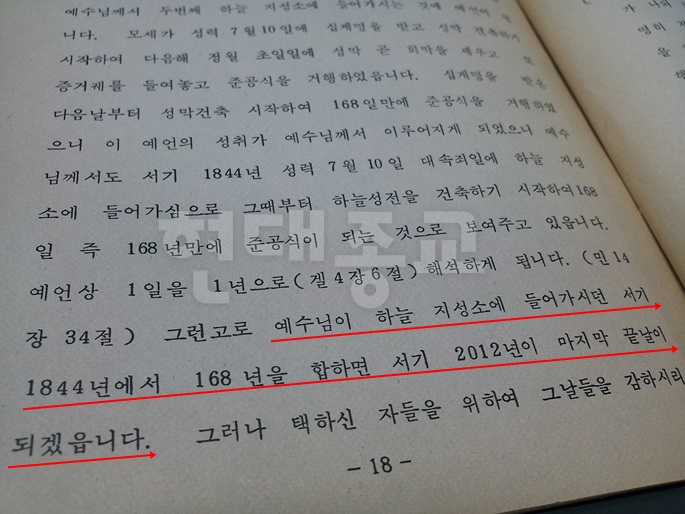 예수님께서 두번째 하늘 지성소에 들어가시는 것에 예언이
니다. 모세가 성력 7월 10일에 십계명을 받고 성막 건축하기
시작하여 다음해 정월 초일일에 성막 곧 회막을 세우고 또
증거궤를 들여놓고 준공식을 거행하였읍니다. 십계명을 받은
다음날부터 성막건축 시작하여 168일만에 준공식을 거행하였
으니 이 예언의 성취가 예수님께서 이루어지게 되었으니 예수
님께서도 서기 1844년 성력 7월 10일 대속죄일에 하늘 지성
소에 들어가심으로 그때부터 하늘성전을 건축하기 시작하여 168
일 즉 168년만에 준공식이 되는 것으로 보여주고 있읍니다.
예언상 1일을 1년으로(겔4장6절) 해석하게 됩니다. (민14
장 34절) 그런고로 예수님이 하늘 지성소에 들어가시던 서기
1844년에서 168년을 합하면 서기 2012년이 마지막 끝날이
되겠읍니다. 그러나 택하신 자들을 위하여 그날들을 감하시리
-18-
현대종교
가 나의
명히